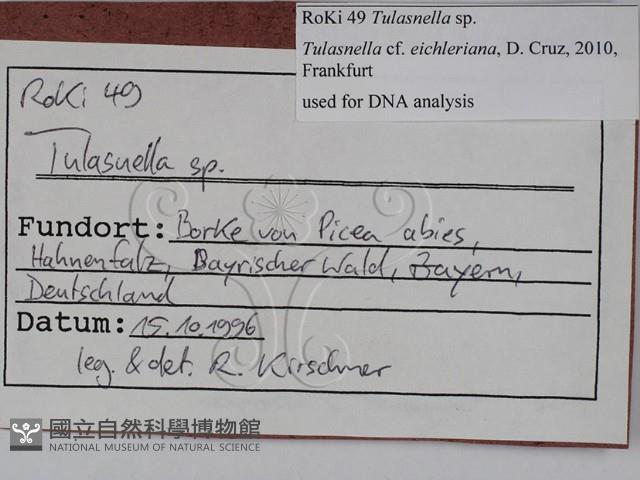 RoKi 49 Tulasnella sp.
Tulasnella cf. eichleriana, D. Cruz, 2010,
Frankfurt
used for DNA analysis
RoKi 49
Tulasnella sp.
Fundort: Borke von Picea abies,
Hahnenfalz, Bayrischer Wald, Bayern,
Deutschland
Datum: 15.10.1996
leg. & det. R. Kirschner
國立自然科學博物館
NATIONAL MUSEUM OF NATURAL SCIENCE